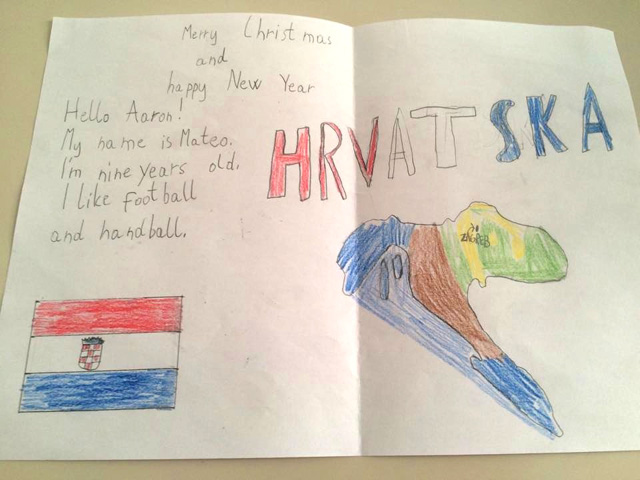 Merry Christmas
and
happy New Year
Hello Aaron!
My name is Mateo.
I'm nine years old.
I like football
and handball.
HRVATSKA
ZAGREB